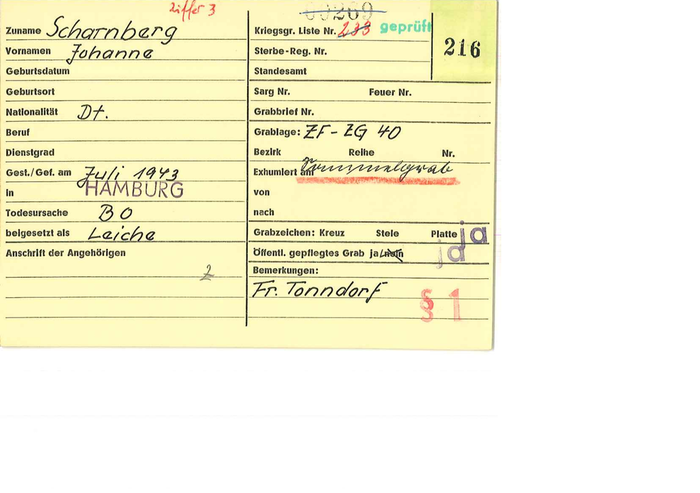 Ziffer 3
Zuname Scharnberg
Vornamen Johanne
Geburtsdatum
Geburtsort
Nationalität Dt.
Beruf
Dienstgrad
Gest./Gef. am Juli 1943
in HAMBURG
Todesursache BO
beigesetzt als Leiche
Anschrift der Angehörigen
2
Kriegsgr. Liste Nr. 233 geprüft
216
Sterbe-Reg. Nr.
Standesamt
Sarg Nr. Feuer Nr.
Grabbrief Nr.
Grablage: ZF-ZG 40
Bezirk Reihe Nr.
Exhumiert am Sammelgrab
von
nach
Grabzeichen: Kreuz Stele Platte ja
Öffentl. gepflegtes Grab ja/nein ja
Bemerkungen:
Fr. Tonndorf
§ 1